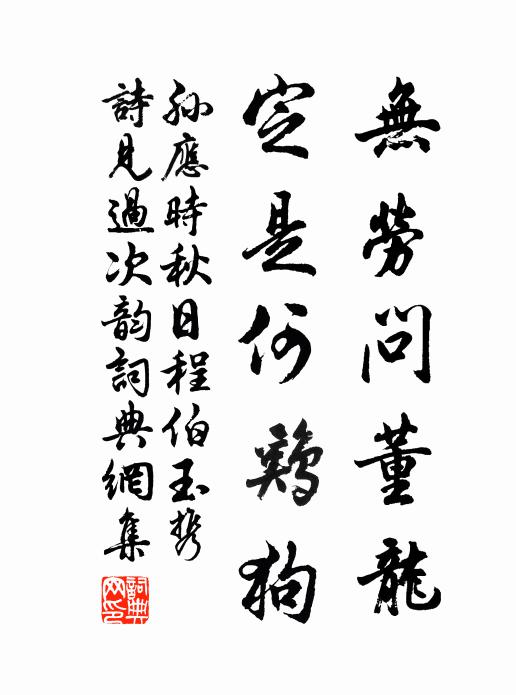 無勞問董龍
定是何鷄狗
孫應時秋日程伯玉携
詩見過次韵詞典網集
詞典網印